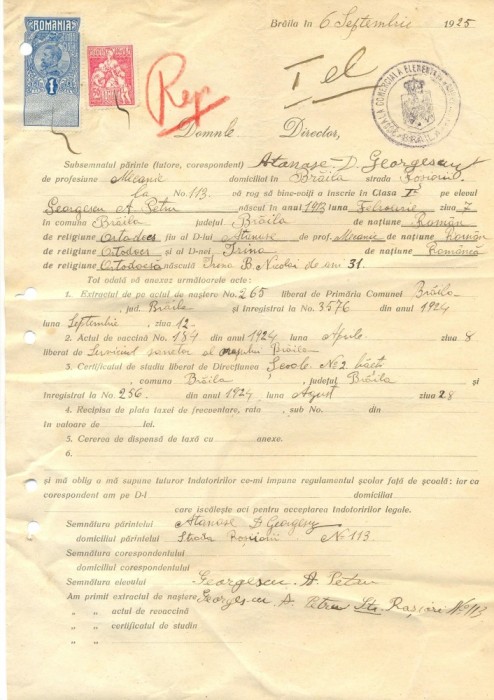 Brăila în 6 Septembrie 1925
ROMANIA
1
Rep
I el
ȘCOALA COMERCIALĂ ELEMENTARĂ
BRĂILA
Domnule Director,
Subsemnatul părinte (tutore, corespondent) Atanase D. Georgescu
de profesiune Mecanic domiciliat în Brăila strada
No. 113. vă rog să bine-voiți a înscrie în Clasa I pe elevul
Georgescu A. Petru născut în anul 1913 luna Februarie ziua 7
în comuna Brăila județul Brăila de națiune Român
de religiune Ortodocs fiu al D-lui Atanase de prof. Mecanic de națiune Român
de religiune Ortodocs și al D-nei Irina de națiune Română
de religiune Ortodocsă născută Irena B. Nicolai de ani 31.
Tot odată să anexez următoarele acte:
1. Extractul de pe actul de naștere No. 265 liberat de Primăria Comunei Brăila
, jud. Brăila și înregistrat la No. 3576 din anul 1924
luna Septembrie ziua 12
2. Actul de vaccină No. 184 din anul 1924 luna Aprilie ziua 8
liberat de Serviciul sanitar al orașului Brăila
3. Certificatul de studiu liberat de Direcțiunea Școale No 2 băeți
, comuna Brăila, județul Brăila și
înregistrat la No. 256 din anul 1924 luna August ziua 28
4. Recipisa de plata taxei de frecuentare, rata , sub No. din
în valoare de lei.
5. Cererea de dispensă de taxă cu anexe.
6.
și mă oblig a mă supune tuturor îndatoririlor ce-mi impune regulamentul școlar față de școală: iar ca
corespondent am pe D-l domiciliat
care iscălește aci pentru acceptarea îndatoririlor legale.
Semnătura părintelui Atanase D Georgescu
domiciliul părintelui Strada Roșiorii No 113
Semnătura corespondentului
domiciliul corespondentului
Semnătura elevului Georgescu A. Petru
Am primit extractul de naștere Georgescu A. Petru Str. Rașiori No 113
„ „ actul de revaccină
„ „ certificatul de studiu
„ „